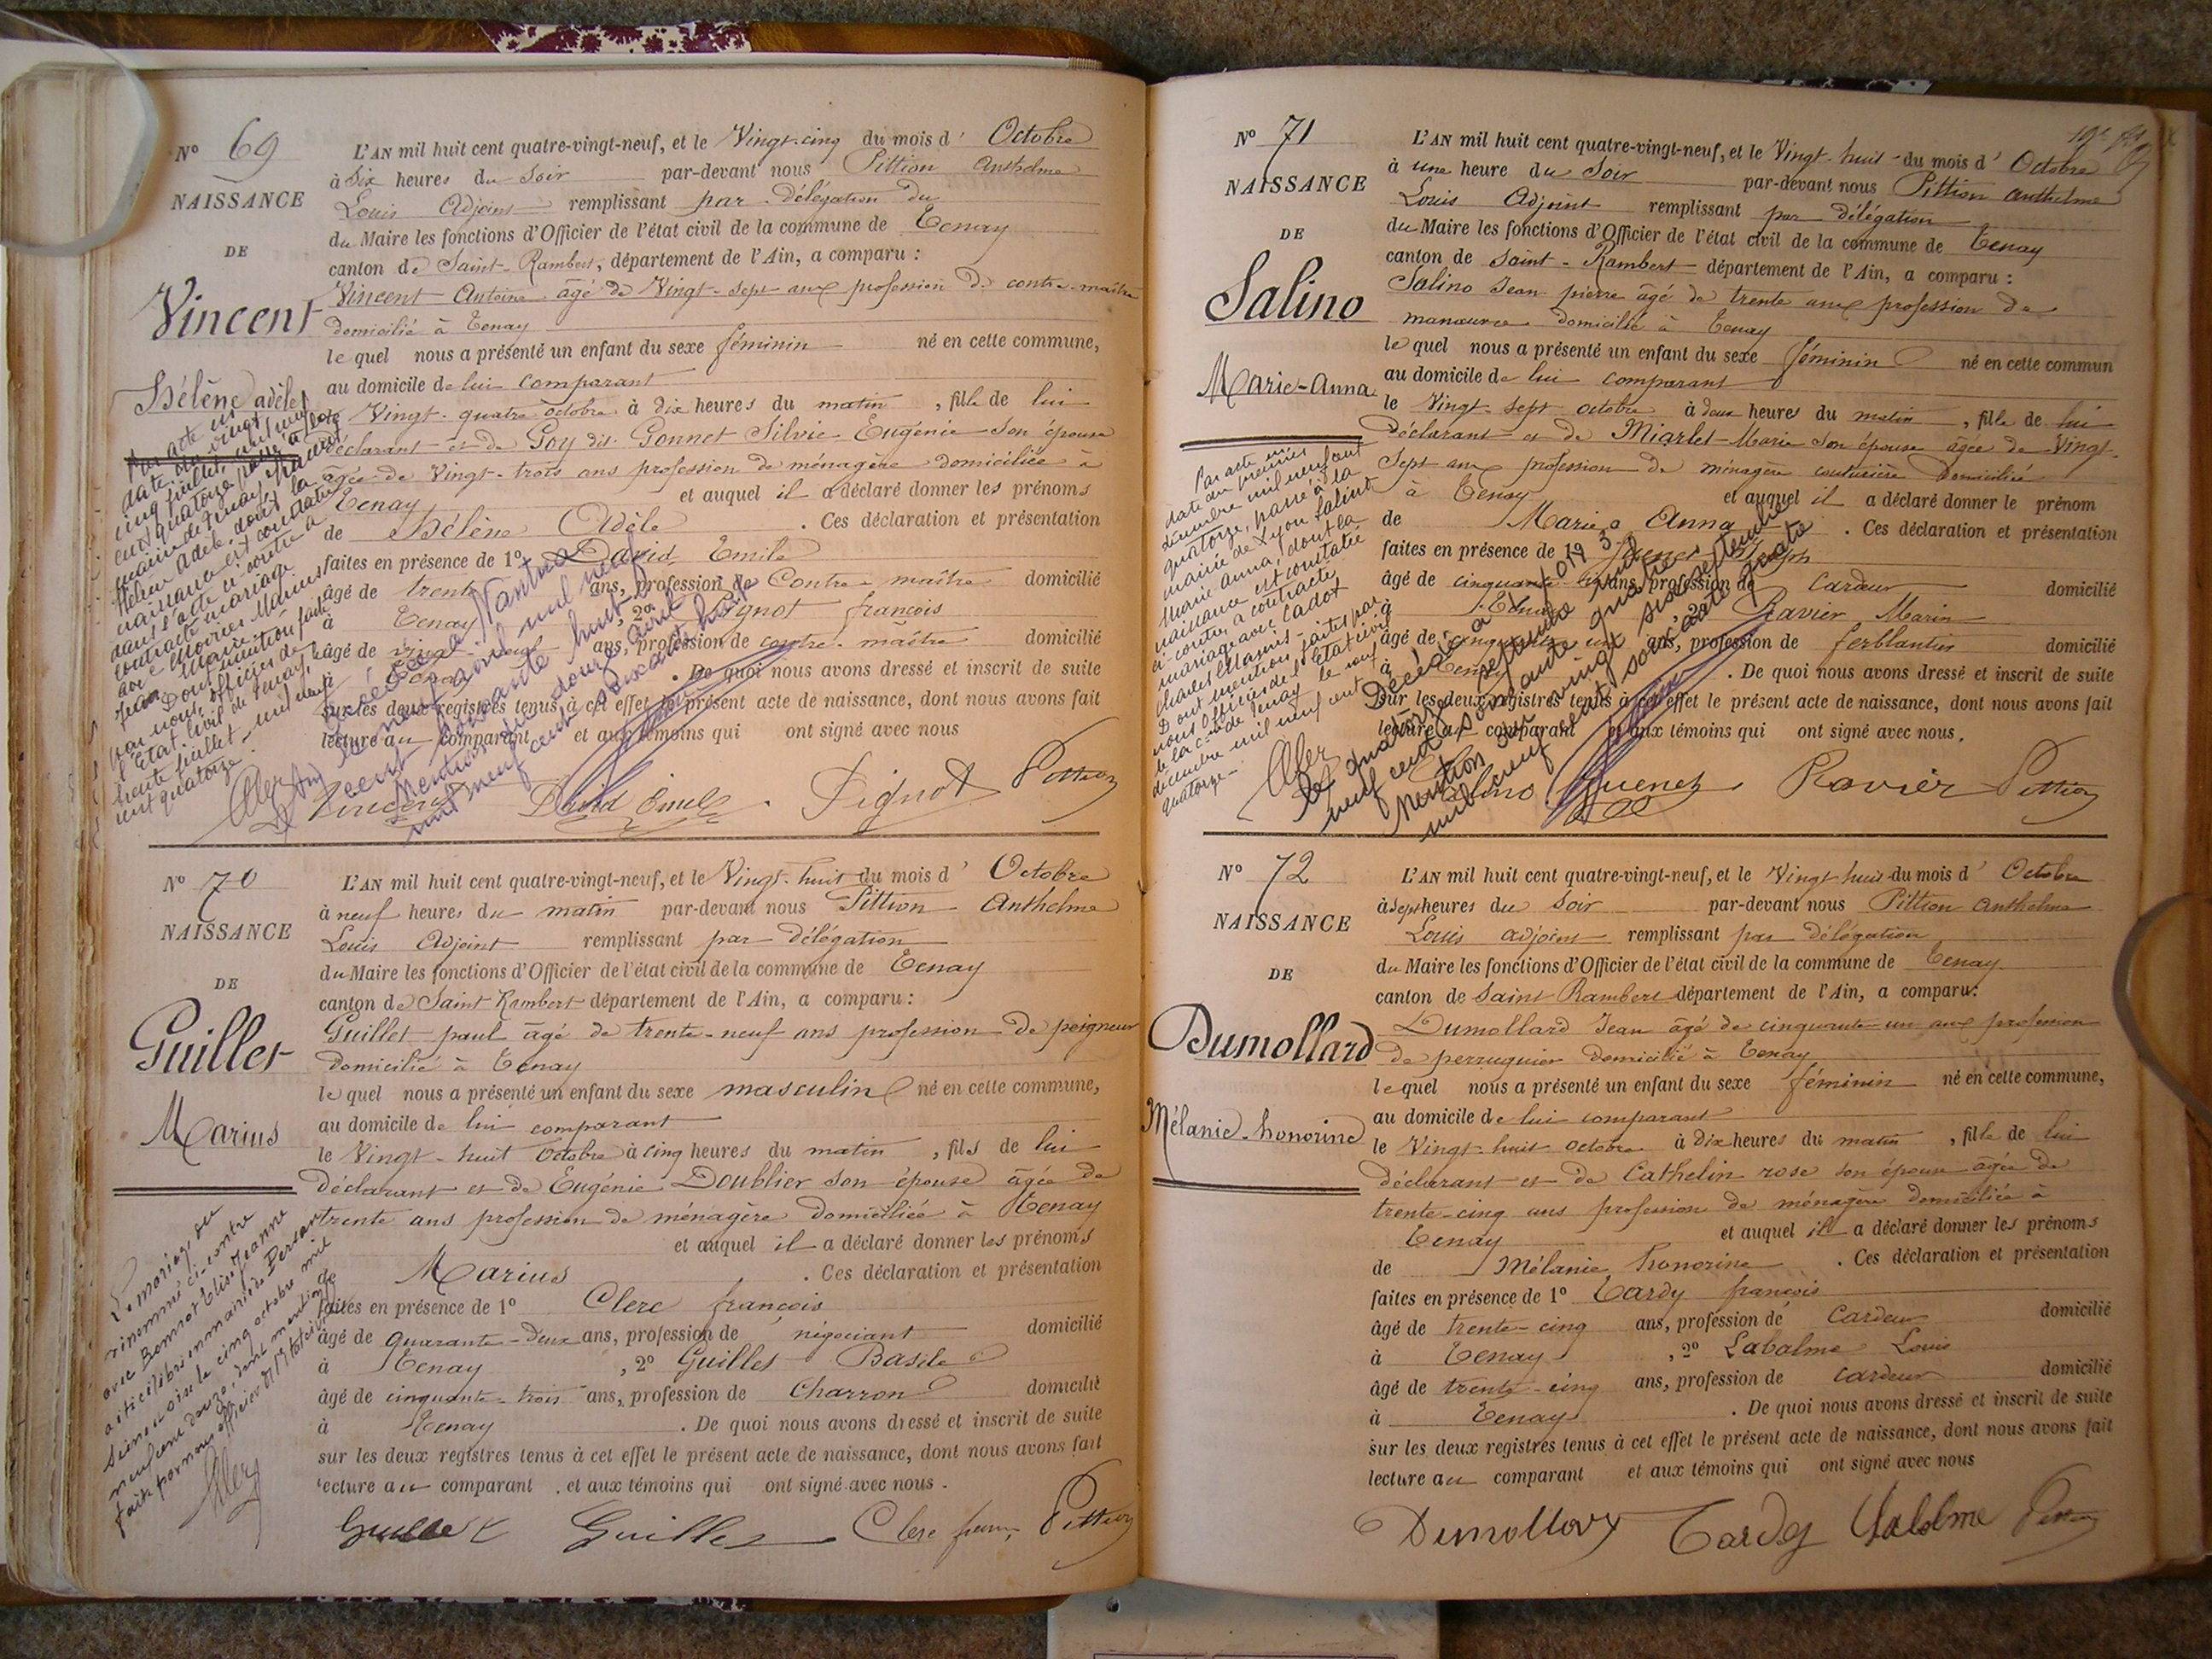 N° 69
NAISSANCE
DE
Vincent
Hélène adèle
L'AN mil huit cent quatre-vingt-neuf, et le Vingt-cinq du mois d' Octobre
à Six heures du Soir par-devant nous Pittion Anthelme
Louis Adjoint remplissant par délégation du
du Maire les fonctions d'Officier de l'état civil de la commune de Tenay
canton de Saint-Rambert, département de l'Ain, a comparu :
Vincent Antoine âgé de Vingt-sept ans profession de contre-maître
domicilié à Tenay
le quel nous a présenté un enfant du sexe féminin né en cette commune,
au domicile de lui comparant
Vingt-quatre octobre à dix heures du matin , fille de lui
déclarant et de Goy dit Gonnet Silvie Eugénie son épouse
âgée de Vingt-trois ans profession de ménagère domiciliée à
Tenay et auquel il a déclaré donner les prénoms
de Hélène Adèle . Ces déclaration et présentation
faites en présence de 1° David Emile
âgé de trente ans, profession de Contre-maître domicilié
à Tenay , 2° Pignot françois
âgé de vingt-neuf ans, profession de contre-maître domicilié
à Tenay . De quoi nous avons dressé et inscrit de suite
sur les deux registres tenus à cet effet le présent acte de naissance, dont nous avons fait
lecture au comparant et aux témoins qui ont signé avec nous
Par acte en
date du vingt
cinq juillet mil neuf
cent quatorze passé à la
mairie de Tenay,
Hélène Adèle, dont la
naissance est constatée
dans l'acte ci-contre a
contracté mariage
avec Marius
Dont mention faite
par nous, officier de
l'état civil de Tenay, le
trente juillet mil neuf
cent quatorze.
Décédée à Nantua
le neuf août mil neuf
cent soixante huit
Mention du douze août
mil neuf cent soixante huit
Vincent David Emile Pignot Pittion
N° 70
NAISSANCE
DE
Guillet
Marius
L'AN mil huit cent quatre-vingt-neuf, et le Vingt-huit du mois d' Octobre
à neuf heures du matin par-devant nous Pittion Anthelme
Louis Adjoint remplissant par délégation
du Maire les fonctions d'Officier de l'état civil de la commune de Tenay
canton de Saint Rambert département de l'Ain, a comparu :
Guillet paul âgé de trente-neuf ans profession de peigneur
domicilié à Tenay
le quel nous a présenté un enfant du sexe masculin né en cette commune,
au domicile de lui comparant
le Vingt-huit Octobre à cinq heures du matin , fils de lui
déclarant et de Eugénie Doublier son épouse âgée de
trente ans profession de ménagère domiciliée à Tenay
et auquel il a déclaré donner les prénoms
de Marius . Ces déclaration et présentation
faites en présence de 1° Clerc françois
âgé de quarante-deux ans, profession de négociant domicilié
à Tenay , 2° Guillet Basile
âgé de cinquante-trois ans, profession de Charron domicilié
à Tenay . De quoi nous avons dressé et inscrit de suite
sur les deux registres tenus à cet effet le présent acte de naissance, dont nous avons fait
lecture au comparant , et aux témoins qui ont signé avec nous .
Le mariage du
sinommé ci-contre
avec Bonnot Elise Jeanne
a été célébré en mairie de Persan
Seine et oise le cinq octobre mil
neuf cent douze, dont mention
faite par nous officier de l'état civil
Guillet Guillet Clerc Pittion
N° 71
NAISSANCE
DE
Salino
Marie-Anna
L'AN mil huit cent quatre-vingt-neuf, et le Vingt-huit du mois d' Octobre
à une heure du Soir par-devant nous Pittion Anthelme
Louis Adjoint remplissant par délégation
du Maire les fonctions d'Officier de l'état civil de la commune de Tenay
canton de Saint-Rambert département de l'Ain, a comparu :
Salino Jean pierre âgé de trente ans profession de
manœuvre domicilié à Tenay
le quel nous a présenté un enfant du sexe féminin né en cette commun
au domicile de lui comparant
le Vingt-sept octobre à deux heures du matin , fille de lui
déclarant et de Miarlet Marie son épouse âgée de Vingt-
Sept ans profession de ménagère couturière domiciliée
à Tenay et auquel il a déclaré donner le prénom
de Marie Anna . Ces déclaration et présentation
faites en présence de 1° Guenet Joseph
âgé de cinquante ans, profession de Cardeur domicilié
à Tenay , 2° Ravier Marin
âgé de cinquante un ans, profession de ferblantier domicilié
à Tenay . De quoi nous avons dressé et inscrit de suite
sur les deux registres tenus à cet effet le présent acte de naissance, dont nous avons fait
lecture au comparant et aux témoins qui ont signé avec nous.
Par acte en
date du premier
décembre mil neuf cent
quatorze, passé à la
mairie de Lyon Salino
Marie Anna, dont la
naissance est constatée
ci-contre, a contracté
mariage avec Cadot
Charles
Dont mention faite par
nous Officier de l'Etat civil
de la Cne de Tenay le neuf
décembre mil neuf cent
quatorze.
Décédée à
le quatorze septembre mil
neuf cent soixante quatre
Mention du vingt six septembre
mil neuf cent soixante quatre
Salino Guenet Ravier Pittion
N° 72
NAISSANCE
DE
Dumollard
Mélanie-honorine
L'AN mil huit cent quatre-vingt-neuf, et le Vingt huit du mois d' Octobre
à Sept heures du Soir par-devant nous Pittion Anthelme
Louis adjoint remplissant par délégation
du Maire les fonctions d'Officier de l'état civil de la commune de Tenay
canton de Saint Rambert département de l'Ain, a comparu:
Dumollard Jean âgé de cinquante-un ans profession
de perruquier domicilié à Tenay
le quel nous a présenté un enfant du sexe féminin né en cette commune,
au domicile de lui comparant
le Vingt-huit octobre à dix heures du matin , fille de lui
déclarant et de Cathelin rose son épouse âgée de
trente-cinq ans profession de ménagère domiciliée à
Tenay et auquel il a déclaré donner les prénoms
de Mélanie honorine . Ces déclaration et présentation
faites en présence de 1° Tardy françois
âgé de trente-cinq ans, profession de Cardeur domicilié
à Tenay , 2° Labalme Louis
âgé de trente-cinq ans, profession de cardeur domicilié
à Tenay . De quoi nous avons dressé et inscrit de suite
sur les deux registres tenus à cet effet le présent acte de naissance, dont nous avons fait
lecture au comparant et aux témoins qui ont signé avec nous
Dumollard Tardy Labalme Pittion